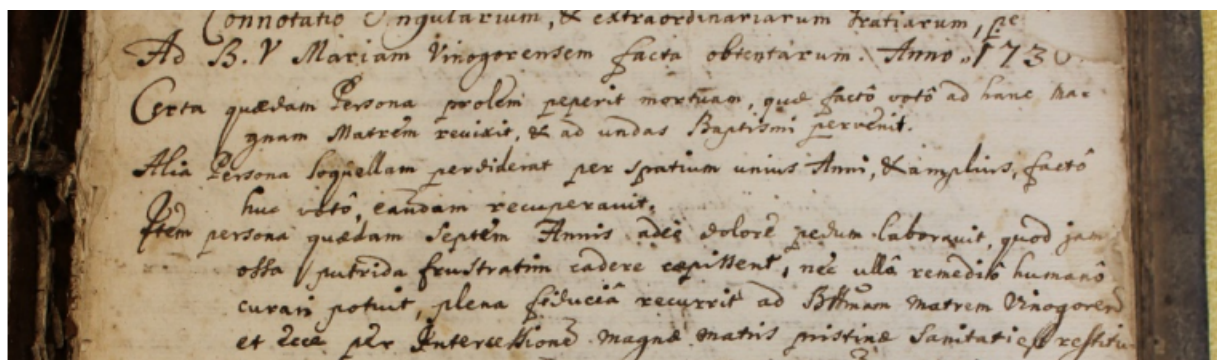 Connotatio Singularium, & extraordinariarum Gratiarum, pe
Ad B. V Mariam Vinogorensem facta obtentarum. Anno 173
Certa quædam Persona prolem peperit mortuam, quæ factô votô ad hanc Ma=
gnam Matrem revixit, & ad undas Baptismi pervenit.
Alia Persona loquellam perdiderat per spatium unius Anni, & amplius, factô
huc votô, eandam recuperavit.
Item persona quædam Septem Annis adeo dolore pedum laboravit, quod jam
ossa putrida frustratim cadere cœpissent, nec ullô remediô humanô
curari potuit, plena fiduciâ recurrit ad Bttmam Matrem Vinogoren
et Ecce per Intercessione Magnæ Matris pristinæ Sanitati est restitu